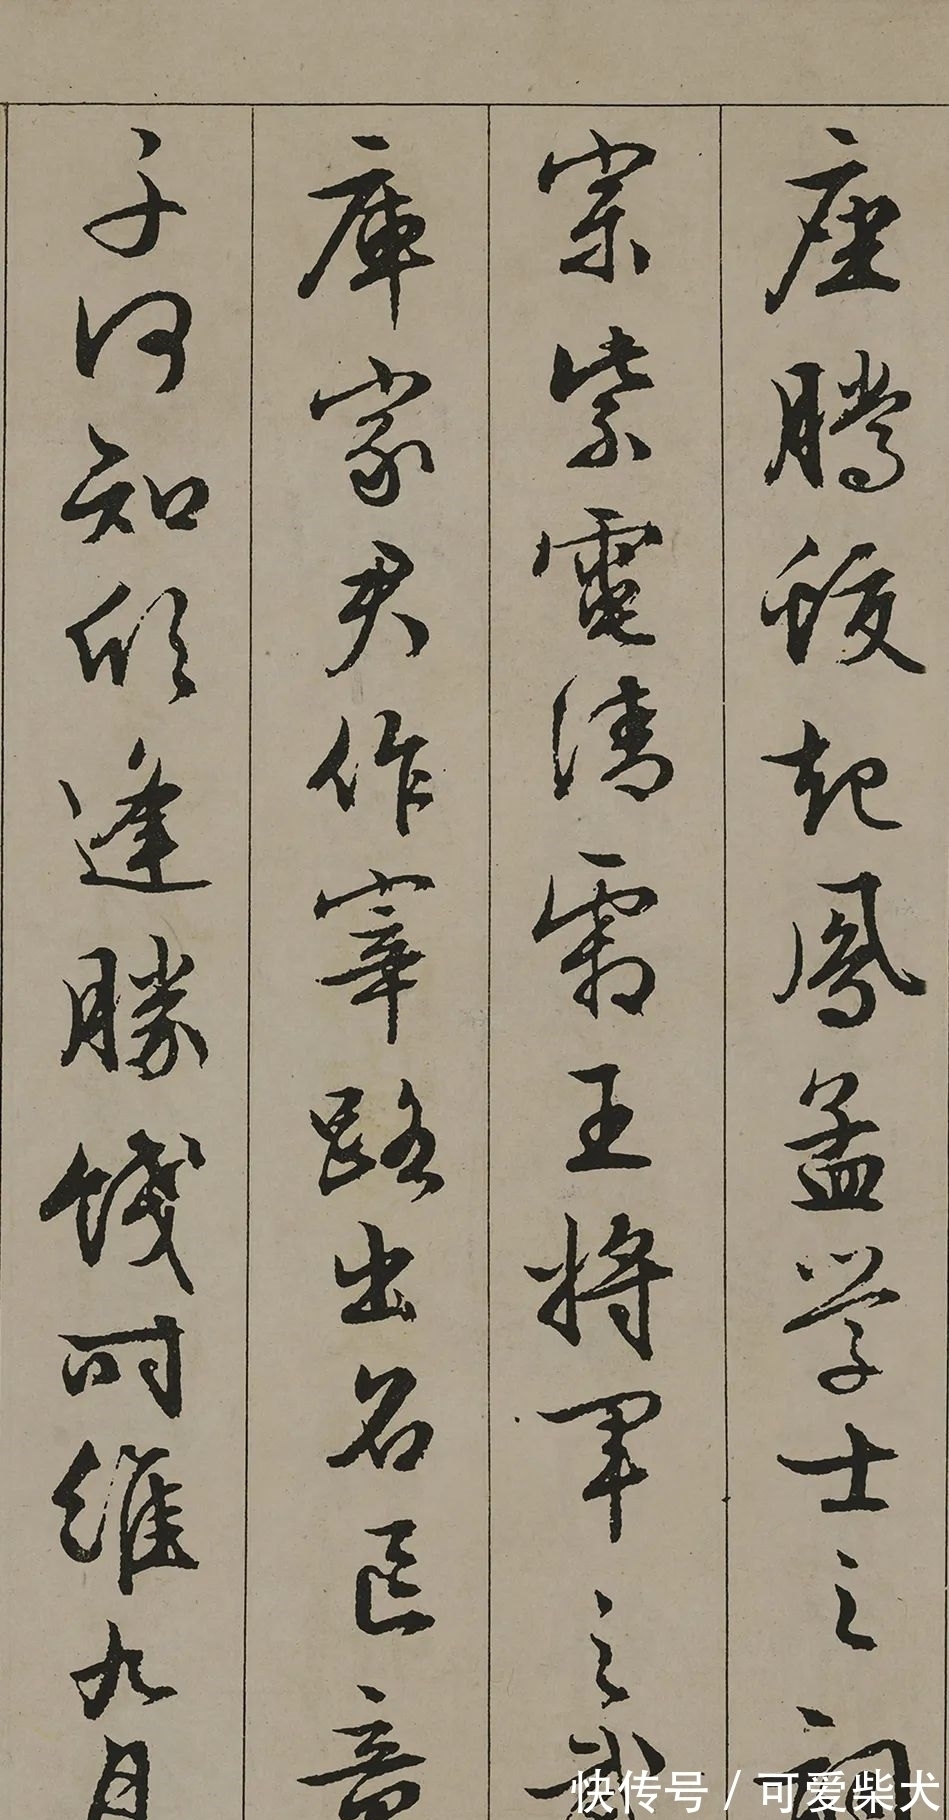 座騰蛟起鳳孟学士之詞
宗紫電清霜王将軍之武
庫家君作宰路出名區童
子何知欣逢勝餞时維九月
快传号 / 可爱柴犬